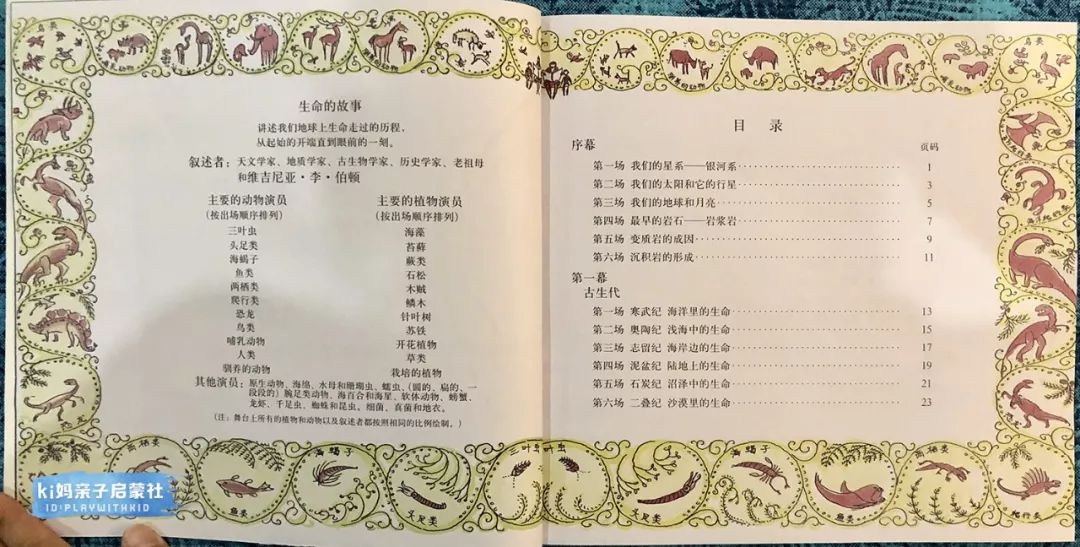 生命的故事
讲述我们地球上生命走过的历程,
从起始的开端直到眼前的一刻。
叙述者:天文学家、地质学家、古生物学家、历史学家、老祖母
和维吉尼亚·李·伯顿
主要的动物演员
(按出场顺序排列)
三叶虫
头足类
海蝎子
鱼类
两栖类
爬行类
恐龙
鸟类
哺乳动物
人类
驯养的动物
主要的植物演员
(按出场顺序排列)
海藻
苔藓
蕨类
石松
木贼
鳞木
针叶树
苏铁
开花植物
草类
栽培的植物
其他演员:原生动物、海绵、水母和珊瑚虫、蠕虫、(圆的、扁的、一
段段的)腕足类动物、海百合和海星、软体动物、螃蟹、
龙虾、千足虫、蜘蛛和昆虫。细菌、真菌和地衣。
(注:舞台上所有的植物和动物以及叙述者都按照相同的比例绘制。)
目 录
序幕 页码
第一场 我们的星系——银河系 1
第二场 我们的太阳和它的行星 3
第三场 我们的地球和月亮 5
第四场 最早的岩石——岩浆岩 7
第五场 变质岩的成因 9
第六场 沉积岩的形成 11
第一幕
古生代
第一场 寒武纪 海洋里的生命 13
第二场 奥陶纪 浅海中的生命 15
第三场 志留纪 海岸边的生命 17
第四场 泥盆纪 陆地上的生命 19
第五场 石炭纪 沼泽中的生命 21
第六场 二叠纪 沙漠里的生命 23
恐龙
两栖类
鱼类
海蝎子
头足类
三叶虫
三叶虫
头足类
海蝎子
鱼类
两栖类
爬行类
ki妈亲子启蒙社
ID:PLAYWITHKID